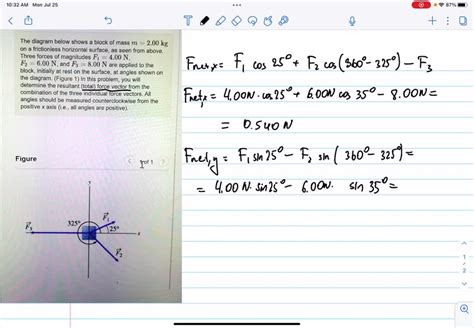 10:32 AM Mon Jul 25
87%
The diagram below shows a block of mass m = 2.00 kg
on a frictionless horizontal surface, as seen from above.
Three forces of magnitudes F₁ = 4.00 N,
F₂ = 6.00 N, and F₃ = 8.00 N are applied to the
block, initially at rest on the surface, at angles shown on
the diagram. (Figure 1) In this problem, you will
determine the resultant (total) force vector from the
combination of the three individual force vectors. All
angles should be measured counterclockwise from the
positive x axis (i.e., all angles are positive).
Figure
1 of 1
y
F₁
325°
25°
F₃
x
F₂
Fnet,x = F₁ cos 25° + F₂ cos(360° - 325°) - F₃
Fnet,x = 4.00N·cos25° + 6.00N cos 35° - 8.00N =
= 0.540N
Fnet,y = F₁ sin25° - F₂ sin (360° - 325°) =
= 4.00 N·sin25° - 6.00N· sin 35° =
1
2